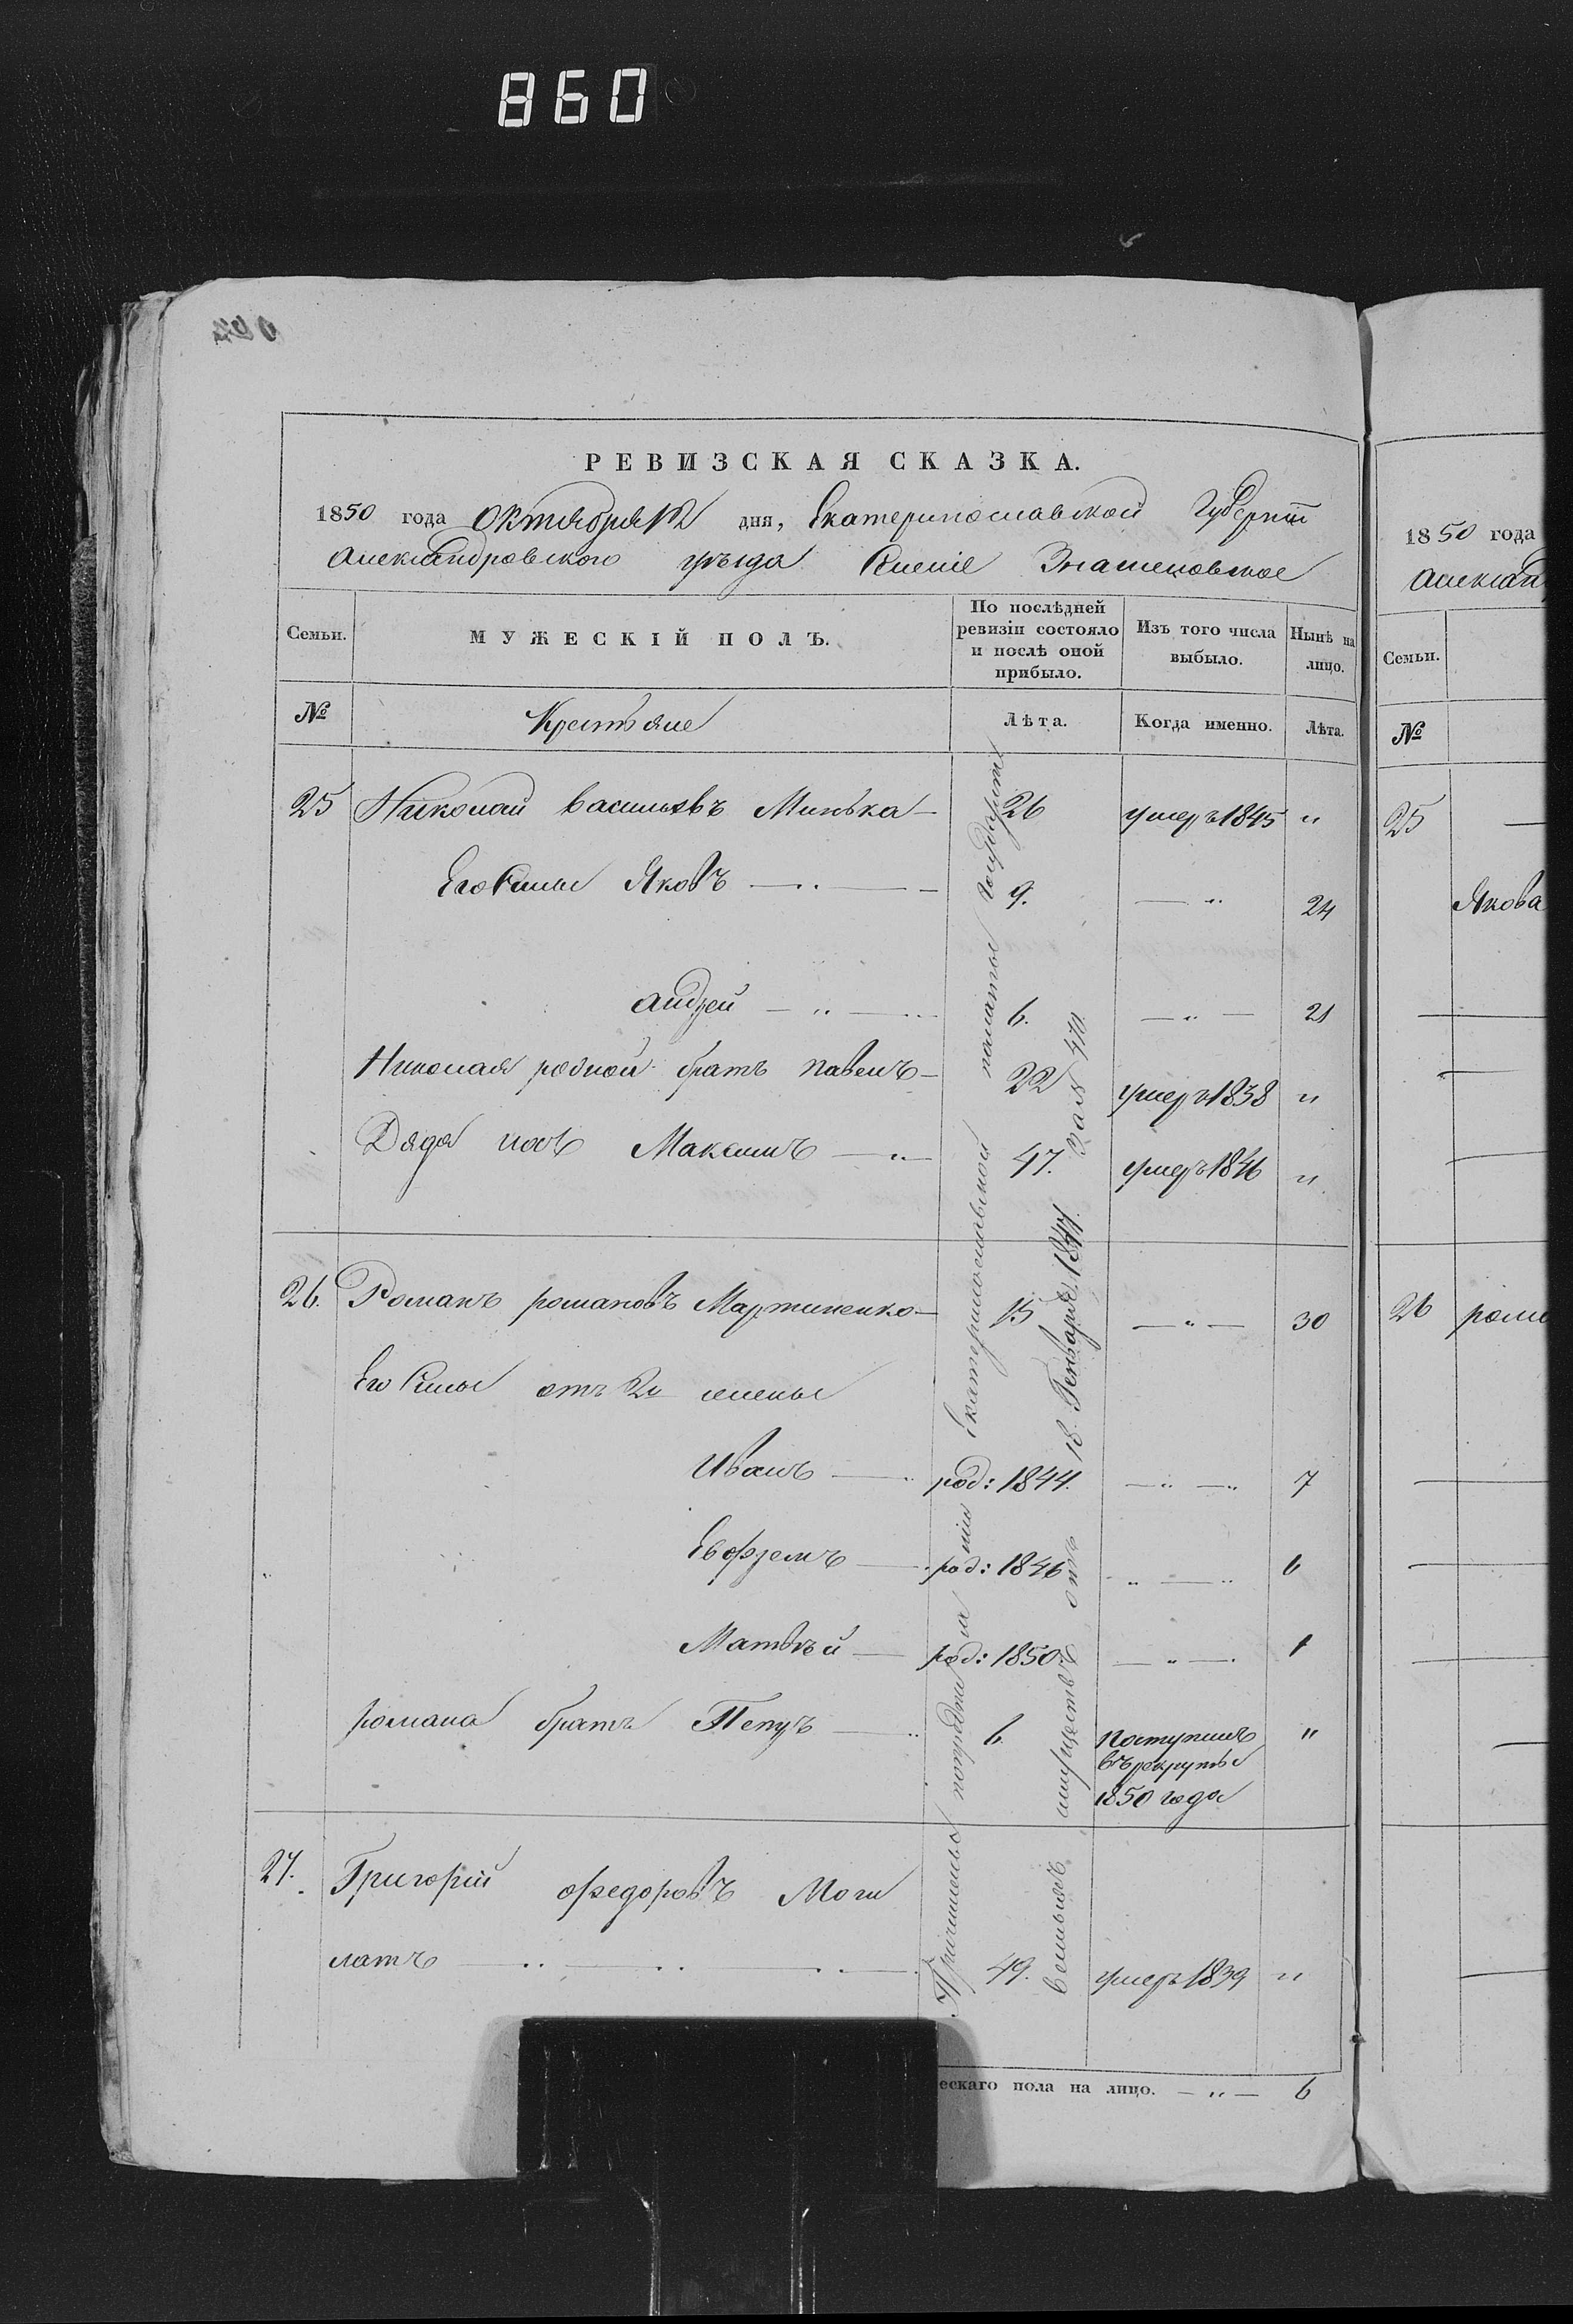 860
РЕВИЗСКАЯ СКАЗКА.
1850 года Октября 12 дня, Екатеринославской Губернiи
Александровскаго уѣзда Знаменовское
Семьи.
МУЖЕСКІЙ ПОЛЪ.
По послѣдней ревизіи состояло и послѣ оной прибыло.
Изъ того числа выбыло.
Нынѣ на лицо.
№
Крестьяне
Лѣта.
Когда именно.
Лѣта.
25 Николай васильевъ Минька — 26 умеръ 1845 "
Его Сыны Яковъ — " — 9. — " 24
андрей — " — 6. — " — 21
Николая родной братъ павелъ — 22 умеръ 1838 "
Дядя Максимъ — " — 47. умеръ 1846 "
26. Романъ романовъ Мартиненко — 15 — " — 30
Его Сыны отъ 2й жены
Иванъ — " род: 1844. — " — " 7
Евфремъ — род: 1846 " — " 6
Матвѣй — род: 1850. — " — 1
романа братъ Петръ — " 6. поступилъ "
въ рекруты
1850 года
27. Григорій федоровъ Моги
латъ — " — " — " — 49. умеръ 1839 "
Екатеринославской палаты государст
имуществъ отъ 18. Генваря 1847. За № 470.
ескаго пола на лицо. — " — 6
1850 года
Александ
Семьи.
№
25 —
Якова
26 рома